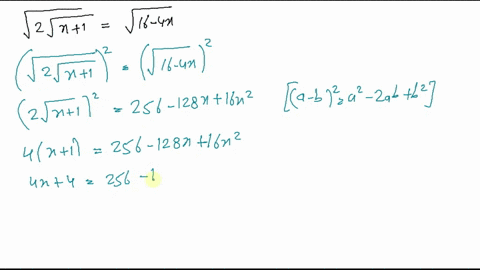 √(2√(x+1)) = √(16-4x)
(√(2√(x+1)))² = (√(16-4x))²
(2√(x+1))² = 256-128x+16x² [(a-b)²=a²-2ab+b²]
4(x+1) = 256-128x+16x²
4x+4 = 256-1